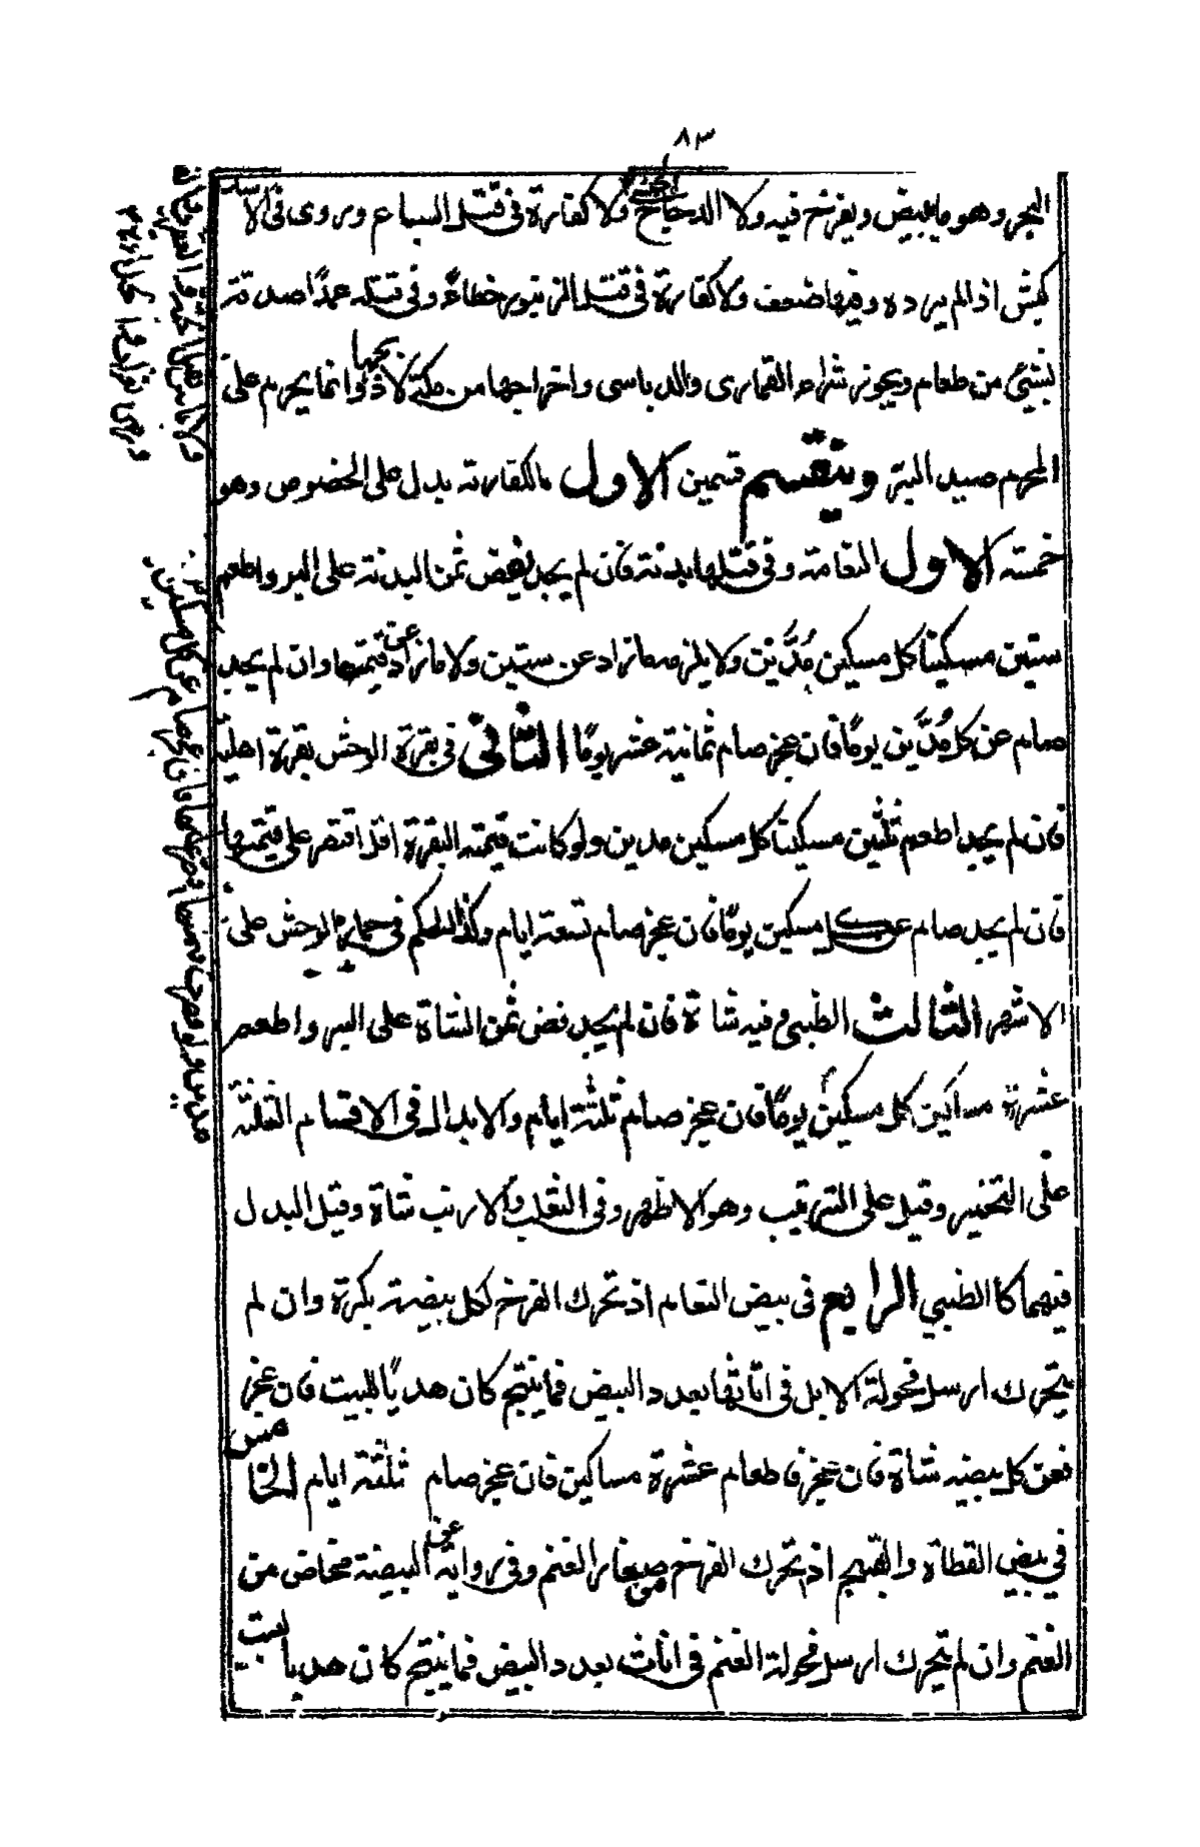 ٨٣
البحر وهو ما يبيض ويفرخ فيه ولا الدجاج الحبشي ولا كفارة فى قتل السباع وروى فى الاسد
كبش اذا لم يرده وفيها ضعف ولا كفارة فى قتل الزنبور خطاءً وفى قتله عمدًا صدقة
بشىء من طعام ويجوز شراء القمارى والدباسى واخراجها من مكة لا ذبحها وانما يحرم على
المحرم صيد البر وينقسم قسمين الاول ما لكفارته بدل على الخصوص وهو
خمسة الاول النعامة وفى قتلها بدنة فان لم يجد يفض ثمن البدنة على البر واطعم
ستين مسكينا كل مسكين مُدَّين ولا يلزم ما زاد عن ستين ولا ما زاد عن قيمتها وان لم يجد
صام عن كل مُدَّين يومًا فان عجز صام ثمانية عشر يومًا الثانى فى بقرة الوحش بقرة اهلية
فان لم يجد اطعم ثلثين مسكينا كل مسكين مدين ولو كانت قيمته البقرة اقل اقتصر على قيمتها
فان لم يجد صام عن كل مسكين يومًا فان عجز صام تسعة ايام وكذا الحكم فى حمار الوحش على
الاشهر الثالث الظبى وفيه شاة فان لم يجد فض ثمن الشاة على البر واطعم
عشرة مساكين كل مسكين يومًا فان عجز صام ثلثة ايام والابدال فى الاقسام الثلثة
على التخيير وقيل على الترتيب وهو الاظهر وفى الثعلب والارنب شاة وقيل البدل
فيهما كالظبي الرابع فى بيض النعام اذ تحرك الفرخ لكل بيضة بكرة وان لم
يتحرك ارسل فحولة الابل فى اناثها بعدد البيض فما ينتج كان هديًا للبيت فان عجز
فعن كل بيضه شاة فان عجز فاطعام عشرة مساكين فان عجز صام ثلثة ايام الخامس
في بيض القطاة والقبج اذ تحرك الفرخ من صغار الغنم وفى رواية عن البيضة مخاض من
الغنم وان لم يتحرك ارسل فحولة الغنم فى اناث بعدد البيض فما ينتج كان هديا لبيت